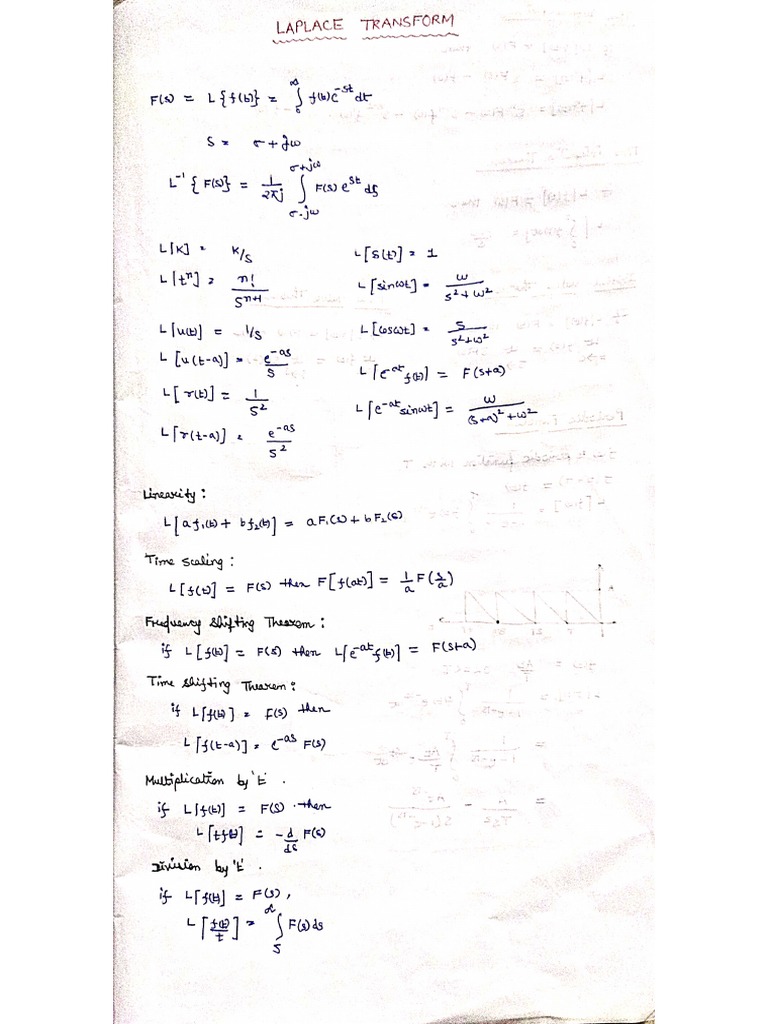 LAPLACE TRANSFORM
F(s) = L{f(t)} = ∫₀^∞ f(t)e^-st dt
S = σ + jω
L^-1 {F(s)} = 1/2πj ∫_σ-jω^σ+jω F(s) e^st ds
L[K] = K/s
L[δ(t)] = 1
L[t^n] = n!/s^n+1
L[sinωt] = ω/s²+ω²
L[u(t)] = 1/s
L[cosωt] = s/s²+ω²
L[u(t-a)] = e^-as/s
L[e^-at f(t)] = F(s+a)
L[r(t)] = 1/s²
L[e^-at sinωt] = ω/(s+a)²+ω²
L[r(t-a)] = e^-as/s²
Linearity:
L[a f₁(t) + b f₂(t)] = a F₁(s) + b F₂(s)
Time scaling:
L[f(t)] = F(s) then F[f(at)] = 1/a F(s/a)
Frequency shifting Theorem:
if L[f(t)] = F(s) then L[e^-at f(t)] = F(s+a)
Time shifting Theorem:
if L[f(t)] = F(s) then
L[f(t-a)] = e^-as F(s)
Multiplication by 't'.
if L[f(t)] = F(s) then
L[tf(t)] = -d/ds F(s)
Division by 't'.
if L[f(t)] = F(s),
L[f(t)/t] = ∫_s^∞ F(s) ds